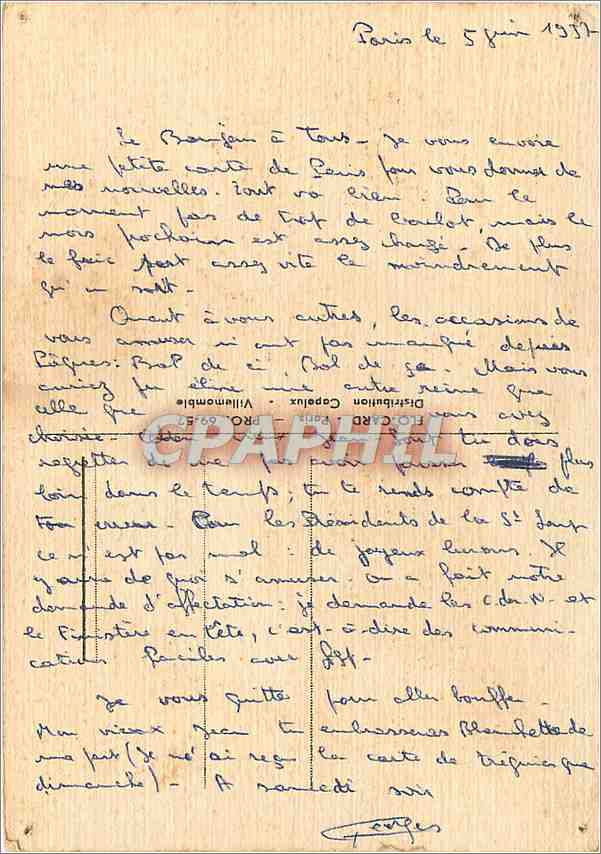 Paris le 5 juin 1957
Le Bonjour à Tous - Je vous envoie
une petite carte de Paris pour vous donner de
mes nouvelles. Tout va bien. Pour le
moment pas de trop de boulot, mais le
mois prochain est assez chargé. De plus
le fric part assez vite le moindrement
qu'on sort.
Quant à vous autres, les occasions de
vous amuser n'ont pas manqué depuis
Pâques: Bal de ci, Bal de ça. Mais vous
auriez pu élire une autre reine que
celle que vous avez
Distribution Capelux - Villemomble
FLO. CARD - Paris PRO. 69-52
CPAPHIL
choisie. tu dois
regretter de ne pas avoir plus
loin dans le temps; tu te rends compte de
ton erreur. Pour les Présidents de la St Loup
ce n'est pas mal: de joyeux lurons. Il
y aura de quoi s'amuser. On a fait notre
demande d'affectation: je demande les C.du.N. et
le Finistère en tête, c'est-à-dire des communi-
cations faciles avec
Je vous quitte pour aller bouffer.
Mon vieux Jean tu embrasseras Blanchette de
ma part (Je n'ai reçu la carte de Tréguier que
dimanche) - A samedi soir
Georges